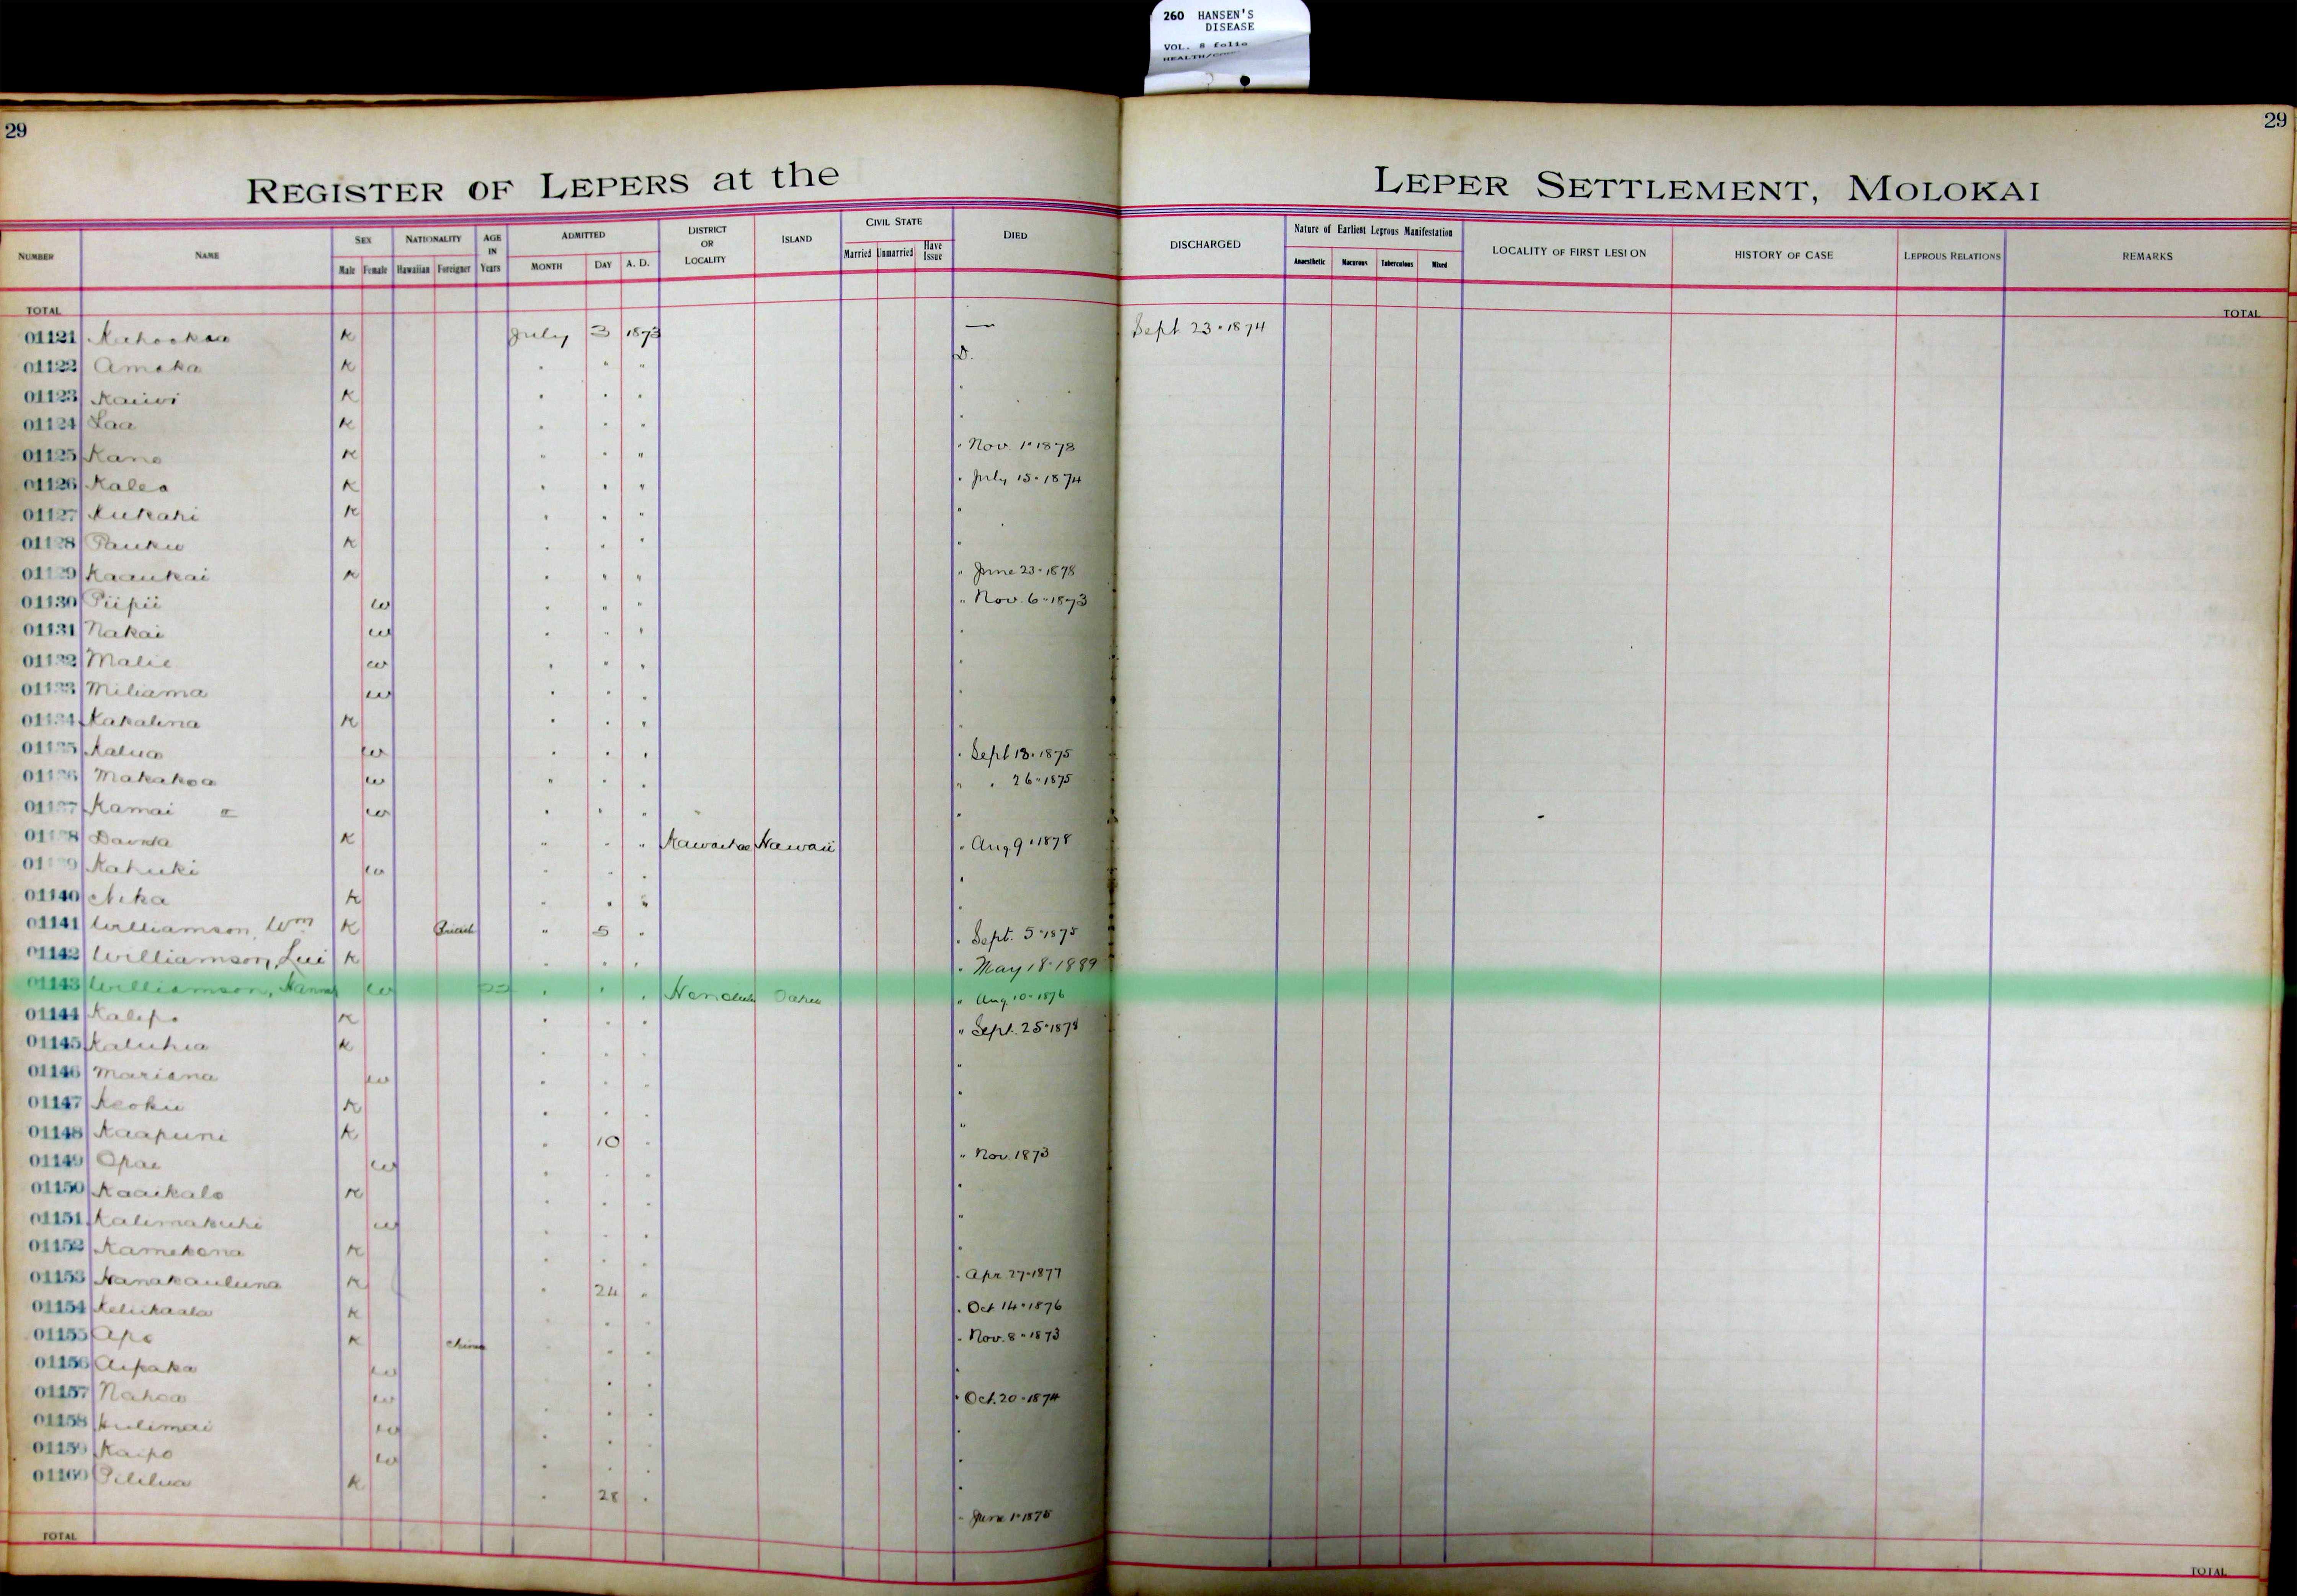 260 HANSEN'S
DISEASE
VOL. 8 folio
29
29
REGISTER OF LEPERS at the LEPER SETTLEMENT, MOLOKAI
NUMBER NAME SEX NATIONALITY AGE IN ADMITTED DISTRICT OR LOCALITY ISLAND CIVIL STATE DIED DISCHARGED Nature of Earliest Leprous Manifestation LOCALITY OF FIRST LESION HISTORY OF CASE LEPROUS RELATIONS REMARKS
Male Female Hawaiian Foreigner Years MONTH DAY A. D. Married Unmarried Have Issue Anaesthetic Macurous Tuberculous Mixed
TOTAL TOTAL
01121 K July 3 1873 — Sept 23 · 1874
01122 Amaka K " " " D.
01123 Kaiwi K " " " "
01124 Laa K " " " "
01125 Kane K " " " " Nov. 1 · 1878
01126 Kalea K " " " " July 15 · 1874
01127 Kukahi K " " " "
01128 Pauku K " " " "
01129 Kaaukai K " " " " June 23 · 1878
01130 Piipii w " " " " Nov. 6 · 1873
01131 Nakai w " " " "
01132 Malie w " " " "
01133 Miliama w " " " "
01134 Kakalina K " " " "
01135 Kalua w " " " " Sept 18 · 1875
01136 Makakoa w " " " " " 26 · 1875
01137 Kamai w " " " "
01138 K " " " Kawaihae Hawaii " Aug 9 · 1878
01139 Kahuki w " " " "
01140 Nika K " " " "
01141 Williamson, Wm K British " 5 " " Sept. 5 · 1875
01142 Williamson, Lui K " " " " May 18 · 1889
01143 Williamson, Hannah w " " " Honolulu Oahu " Aug. 10 · 1876
01144 K " " " " Sept. 25 · 1878
01145 Kaluhia K " " " "
01146 Mariana w " " " "
01147 Keoku K " " " "
01148 Kaapuni K " 10 " "
01149 Opae w " " " " Nov. 1873
01150 Kaaikalo K " " " "
01151 Kalimakuhi w " " " "
01152 Kamekona K " " " "
01153 Nanakauluna K " 24 " " Apr 27 · 1877
01154 Keliikaala K " " " " Oct 14 · 1876
01155 Apo K China " " " " Nov. 8 · 1873
01156 Aipaka w " " " "
01157 Nahoa w " " " " Oct. 20 · 1874
01158 Hulimai w " " " "
01159 Kaipo w " " " "
01160 K " 28 " " June 1 · 1875
TOTAL TOTAL